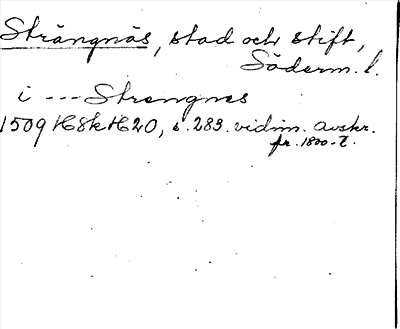 Strängnäs, stad och stift,
Söderm. l.
i --- Strengnes
1509 16/8 k H 20, s. 283. vidim. avskr.
fr. 1800-t.